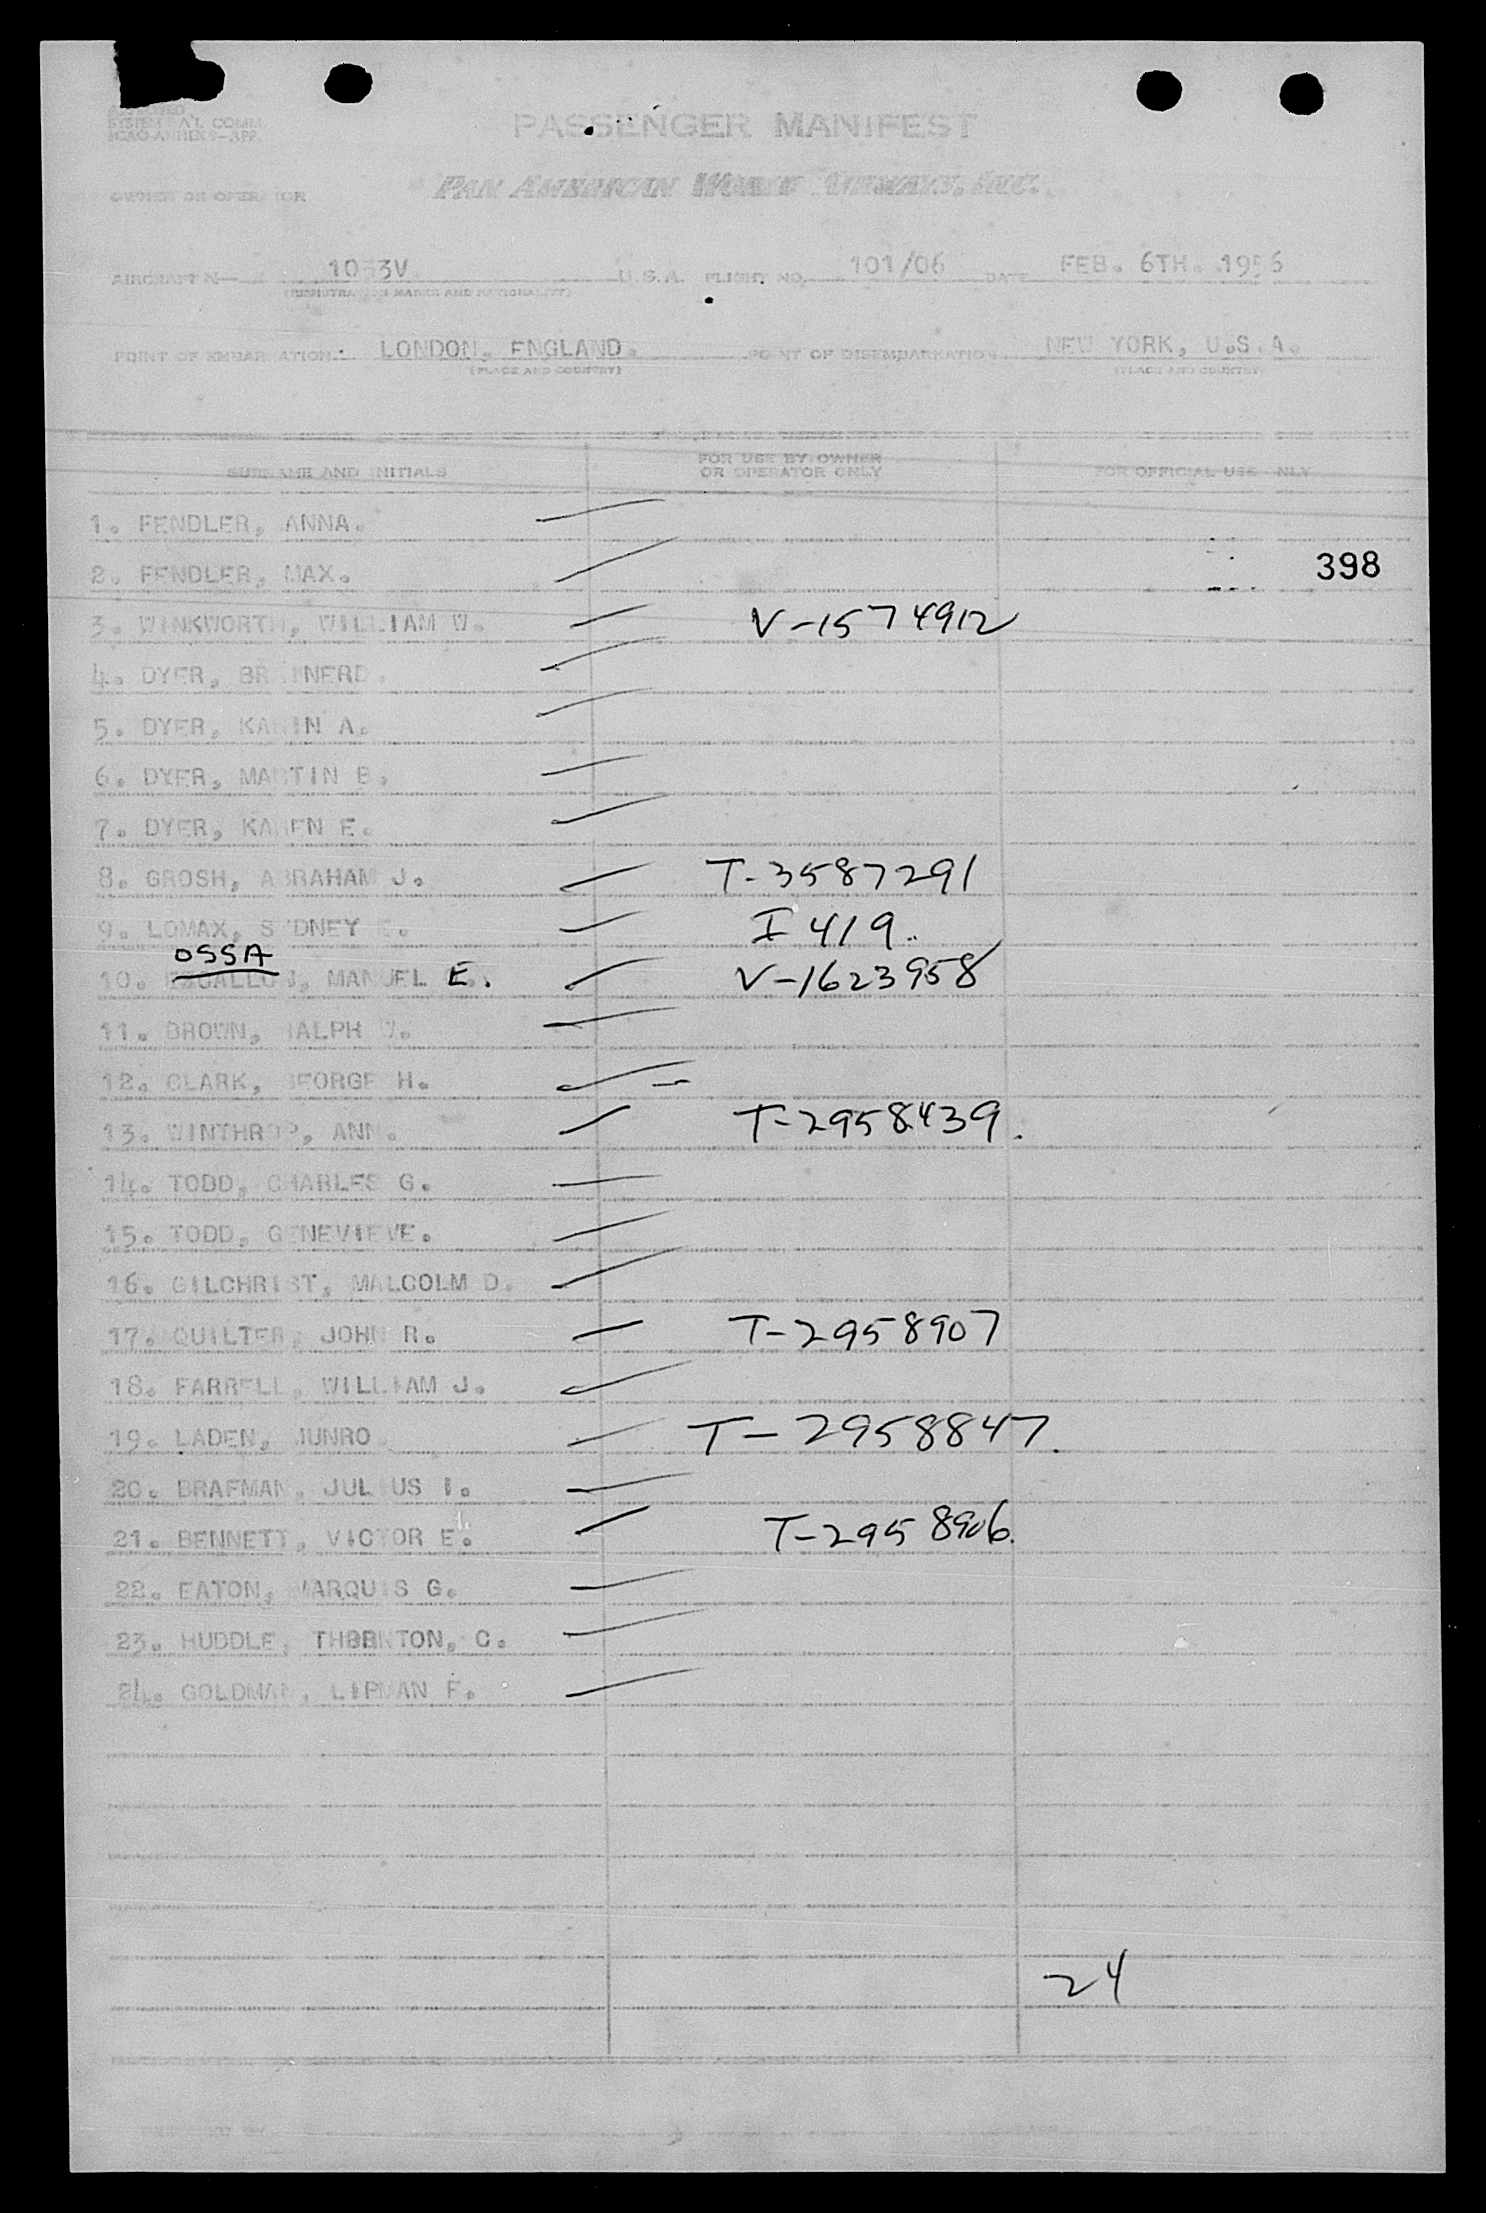 PASSENGER MANIFEST
PAN AMERICAN WORLD AIRWAYS, INC.
OWNER OR OPERATOR
AIRCRAFT N— 1033V U.S.A. FLIGHT NO. 101/06 DATE FEB. 6TH. 1956
(REGISTRATION MARKS AND NATIONALITY)
POINT OF EMBARKATION LONDON, ENGLAND. POINT OF DISEMBARKATION NEW YORK, U.S.A.
(PLACE AND COUNTRY) (PLACE AND COUNTRY)
SURNAME AND INITIALS FOR USE BY OWNER OR OPERATOR ONLY FOR OFFICIAL USE ONLY
1. FENDLER, ANNA.
2. FENDLER, MAX. 398
3. WINKWORTH, WILLIAM W. V-1574912
4. DYER, BRAINERD.
5. DYER, KARIN A.
6. DYER, MARTIN B.
7. DYER, KAREN E.
8. GROSH, ABRAHAM J. T-3587291
9. LOMAX, SYDNEY E. I 419.
OSSA
10. MANUEL E. V-1623958
11. BROWN, RALPH W.
12. CLARK, GEORGE H.
13. WINTHROP, ANN. T-2958439.
14. TODD, CHARLES G.
15. TODD, GENEVIEVE.
16. GILCHRIST, MALCOLM D.
17. QUILTER, JOHN R. T-2958907
18. FARRELL, WILLIAM J.
19. LADEN, MUNRO. T-2958847.
20. BRAFMAN, JULIUS I.
21. BENNETT, VICTOR E. T-2958906.
22. EATON, MARQUIS G.
23. HUDDLE, THORNTON, C.
24. GOLDMAN, LIPMAN F.
24